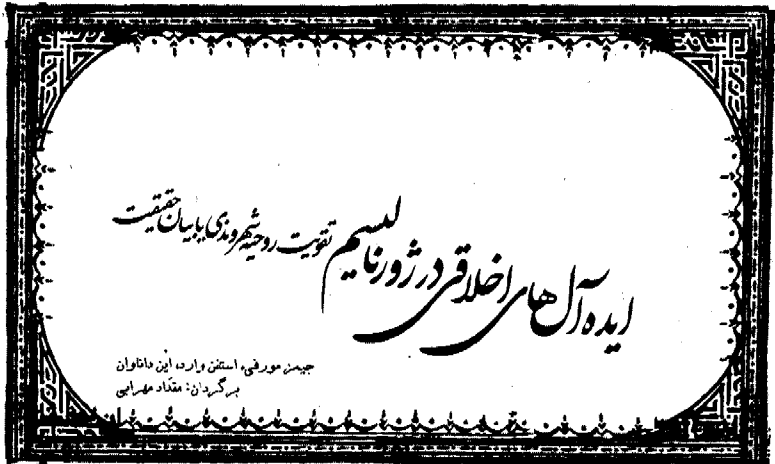 ایده‌آل‌های اخلاقی در ژورنالیسم
تقویت روحیه شهروندی یا بیان حقیقت
جیمز مورفی، استفن وارد، آین داناوان
برگردان: مقداد مهرابی